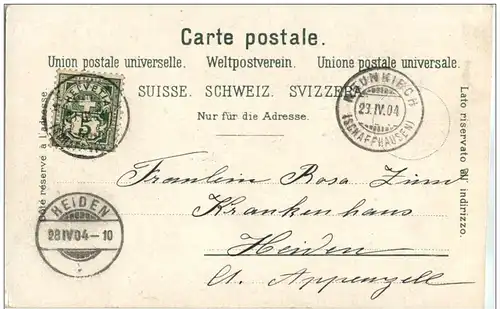 Carte postale.
Union postale universelle. Weltpostverein. Unione postale universale.
SUISSE. SCHWEIZ. SVIZZERA.
Nur für die Adresse.
Côté réservé à l'adresse.
Lato riservato all' indirizzo.
HELVETIA
5
NEUNKIRCH
23.IV.04
(SCHAFFHAUSEN)
HEIDEN
23 IV 04–10
Fraulein Rosa
Krankenhaus
Heiden
Ct. Appenzell